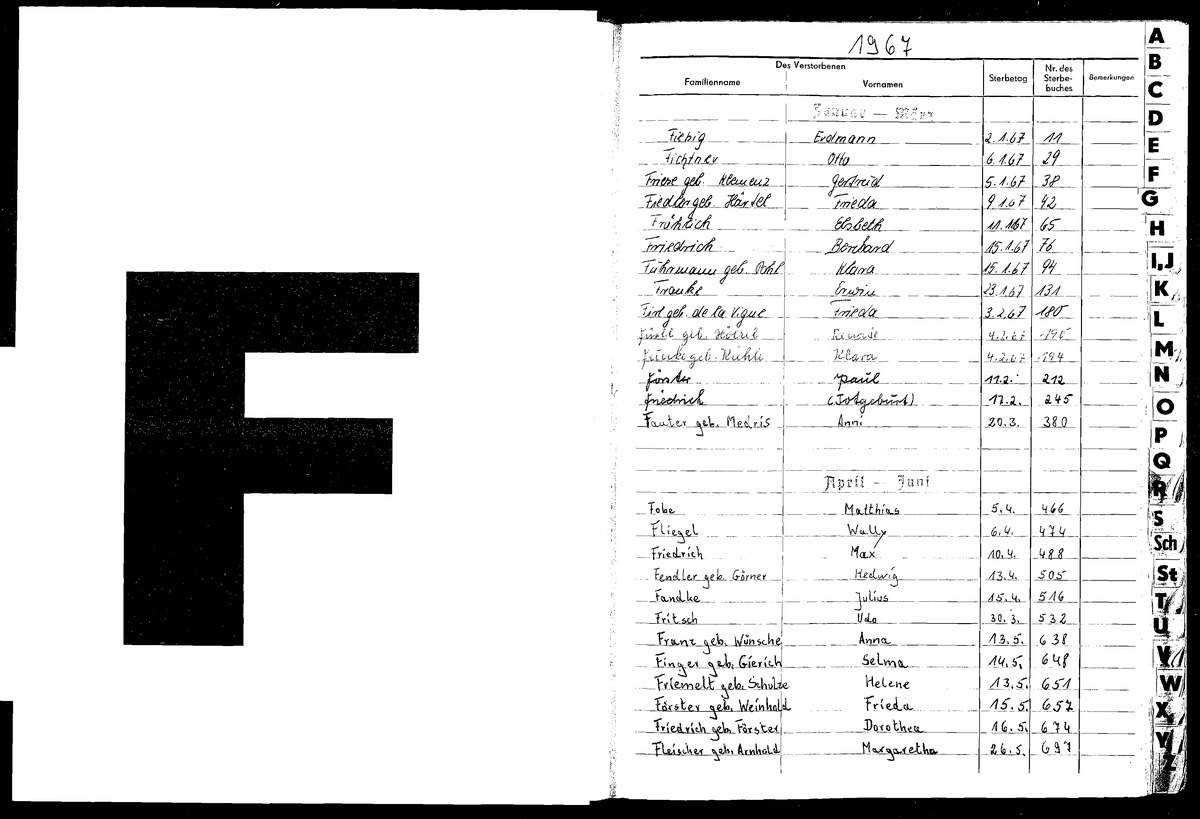 F
1967
Des Verstorbenen
Familienname Vornamen Sterbetag Nr. des Sterbe- buches Bemerkungen
Januar — März
Fiebig Erdmann 2.1.67 11
Fichtner Otto 6.1.67 29
Friese geb. Klemenz Gertrud 5.1.67 38
Fiedler geb. Härtel Frieda 9.1.67 42
Fröhlich Elsbeth 11.1.67 65
Friedrich Bernhard 15.1.67 76
Fuhrmann geb. Pohl Klara 15.1.67 94
Franke Erwin 23.1.67 131
geb. de la Vigue Frieda 3.2.67 180
geb. 4.2.67
geb. Klara 4.2.67 194
Förster Paul 11.2. 212
Friedrich (Totgeburt) 17.2. 245
Fauter geb. Medris Anni 20.3. 380
April — Juni
Fobe Matthias 5.4. 466
Fliegel Wally 6.4. 474
Friedrich Max 10.4. 488
Fendler geb. Görner Hedwig 13.4. 505
Fandke Julius 15.4. 516
Fritsch Udo 30.3. 532
Franz geb. Wünsche Anna 13.5. 638
Finger geb. Gierich Selma 14.5. 648
Friemelt geb. Schulze Helene 13.5. 651
Förster geb. Weinhold Frieda 15.5. 657
Friedrich geb. Förster Dorothea 16.5. 674
Fleischer geb. Arnhold Margaretha 26.5. 697
A
B
C
D
E
F
G
H
I,J
K
L
M
N
O
P
Q
R
S
Sch
St
T
U
V
W
X
Y
Z